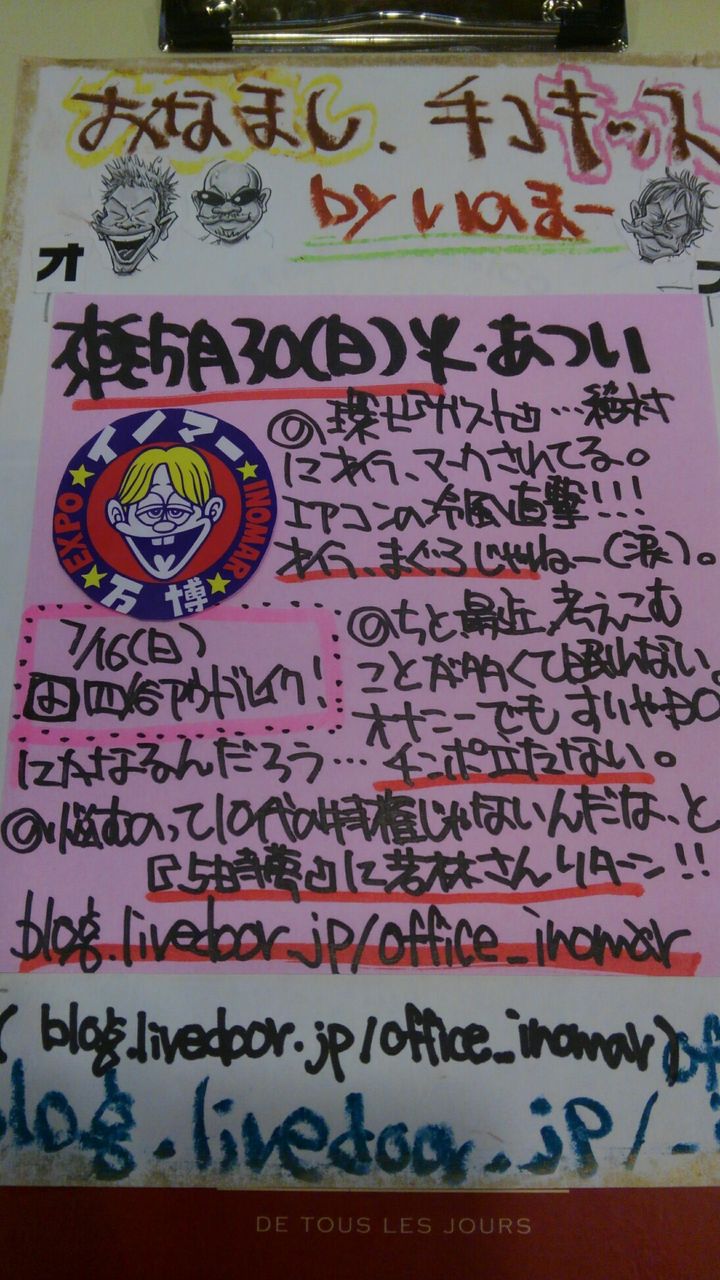 おなまし、チンキッス
by いのまー
オ
5月30(日)火・あつい
◎環七ガスト也…絶対
にオイラ、マークされてる。
エアコンの冷風直撃!!!
オイラ、まぐろじゃねー(涙)。
イノマー
EXPO
INOMAR
万博
◎ちと最近、考えこむ
ことが多くて眠れない。
7/16(日)
四谷アウトブレイク!
オナニーでもすりゃ
になるんだろう… チンポ立たない。
◎悩むのって10代の特権じゃないんだな、と
『5時夢』に若林さんリターン!!
blog.livedoor.jp/office_inomar
( blog.livedoor.jp/office_inomar)
blog.livedoor.jp/
DE TOUS LES JOURS